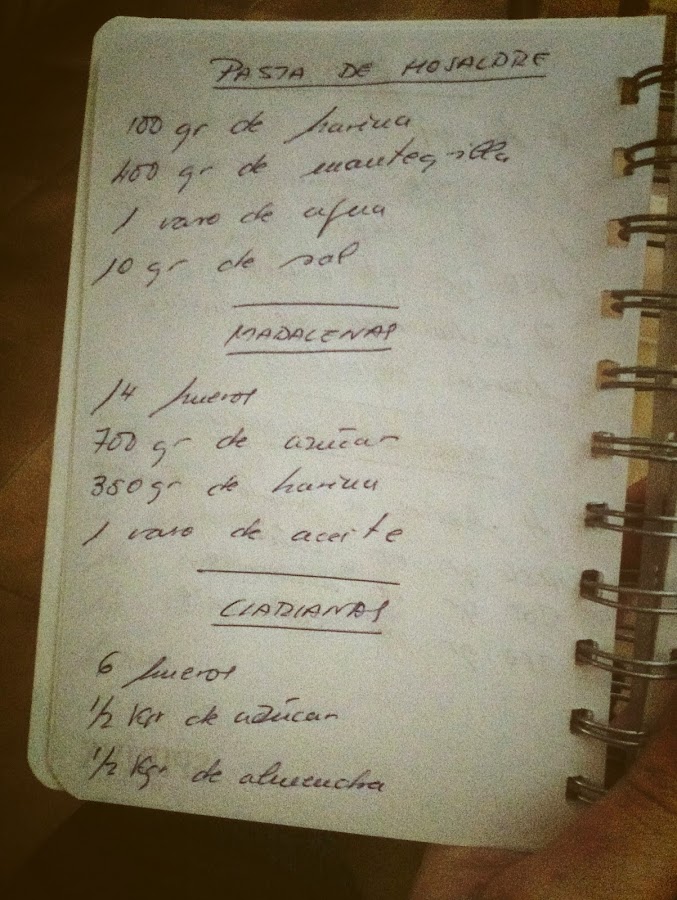 PASTA DE HOSALDRE
100 gr de harina
400 gr de mantequilla
1 vaso de agua
10 gr de sal
MADALENAS
14 huevos
700 gr de azúcar
350 gr de harina
1 vaso de aceite
CLARIANAS
6 huevos
1/2 Kgr de azúcar
1/2 Kgr de almendra